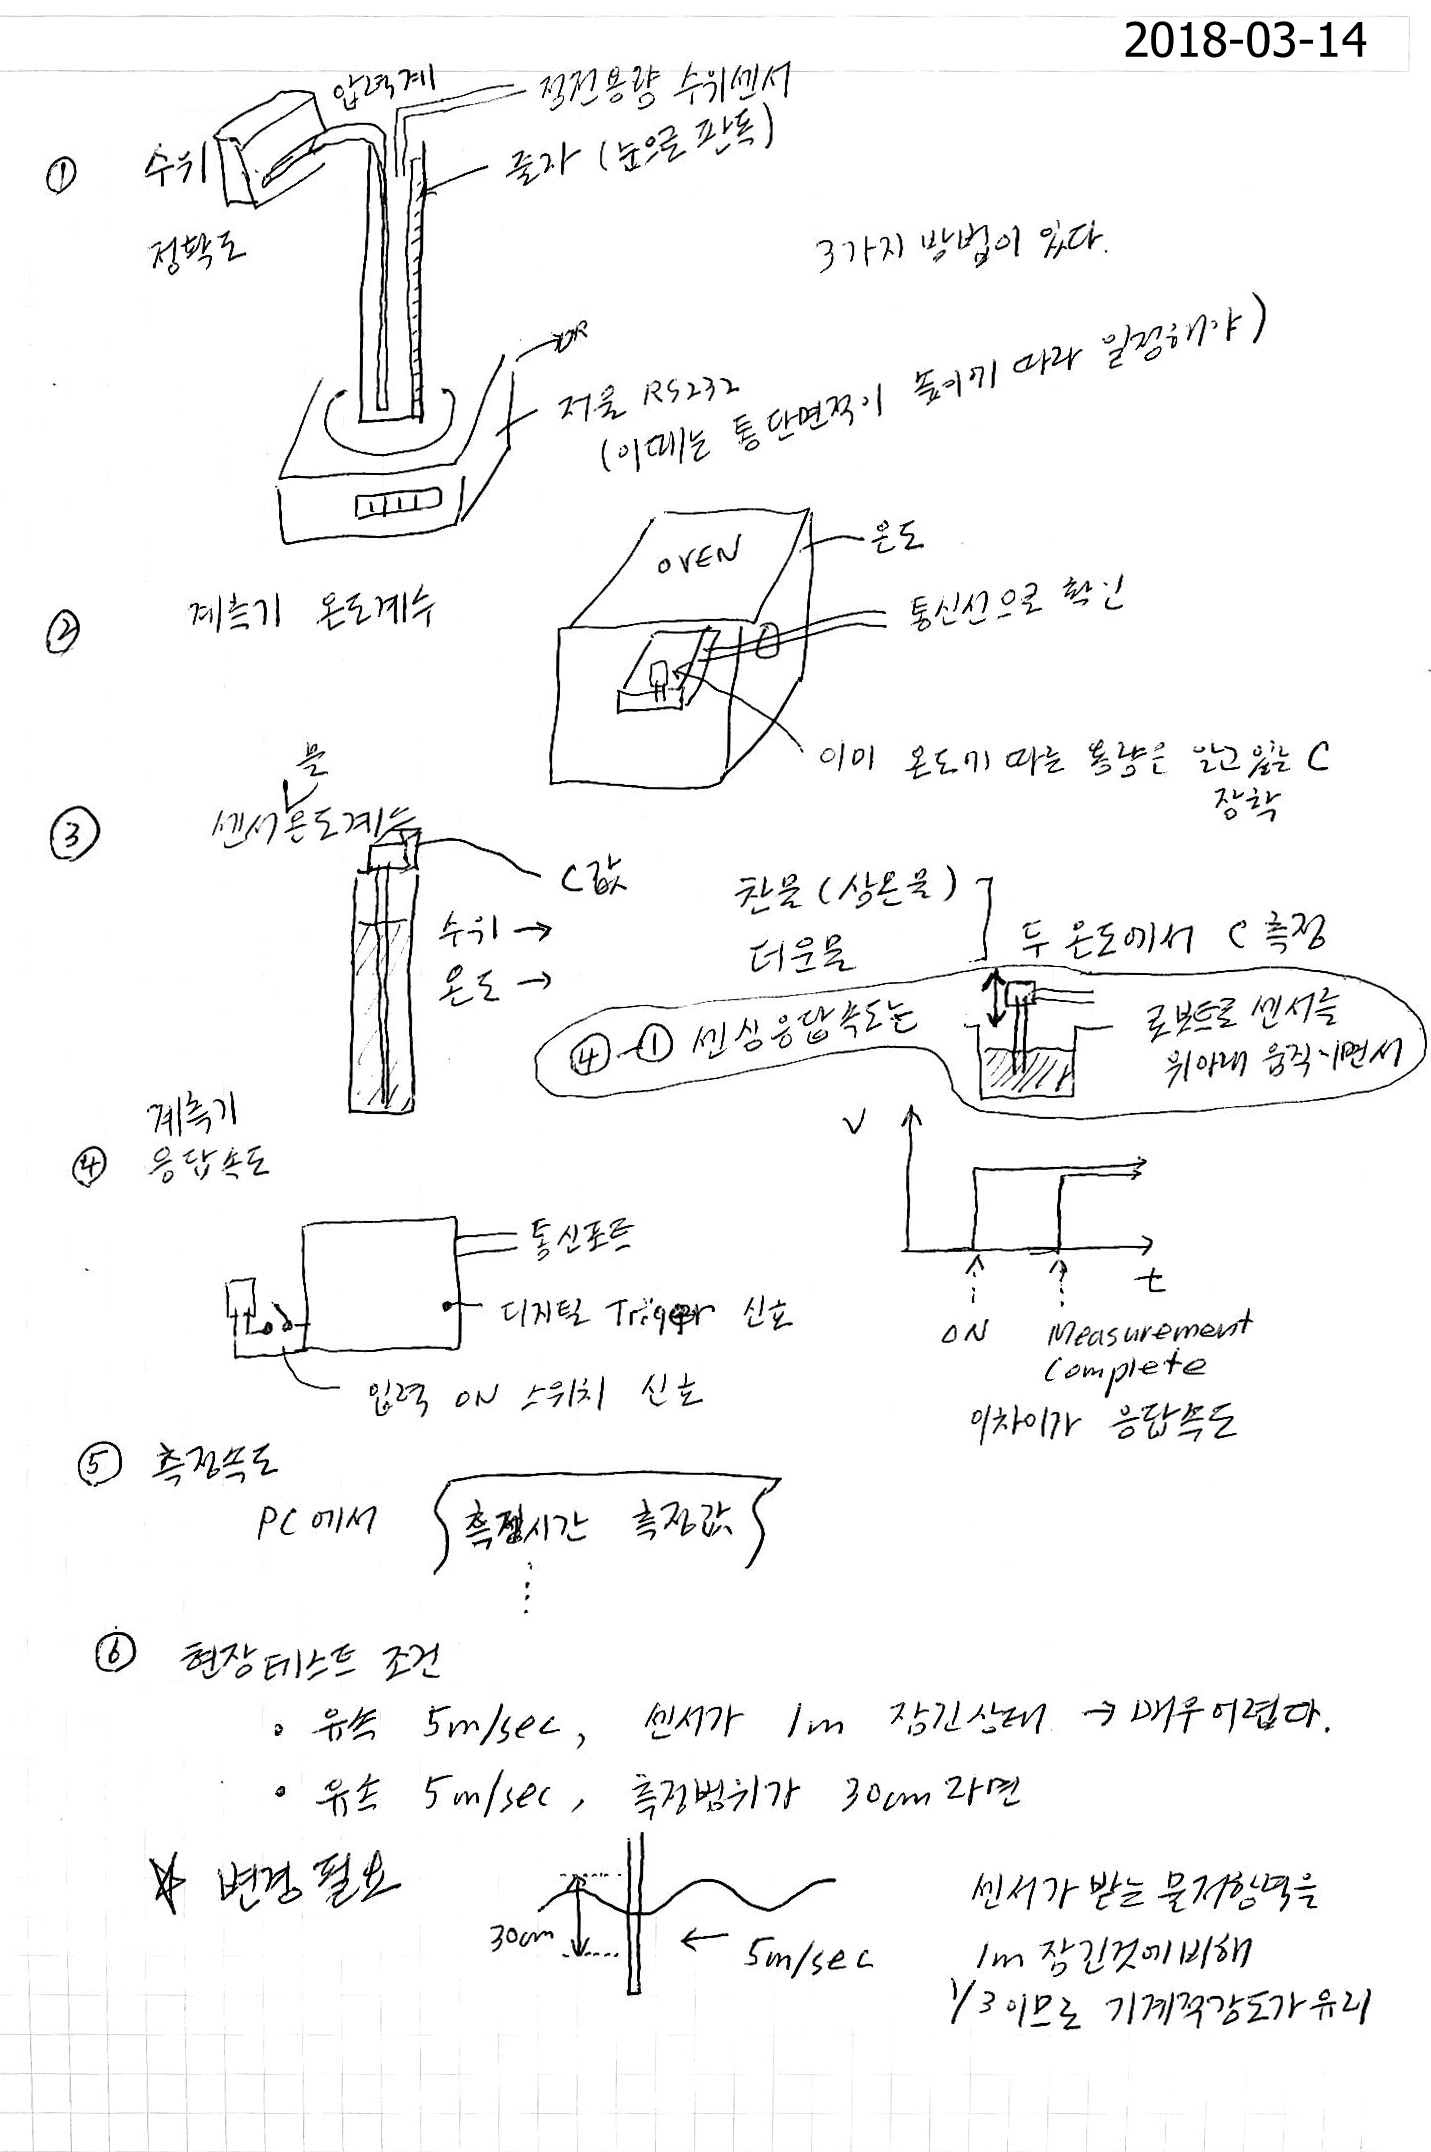 2018-03-14
압력계
정전용량 수위센서
줄자 (눈으로 판독)
① 수위
정확도
3가지 방법이 있다.
저울 RS232
(이때는 통 단면적이 높이에 따라 일정해야)
OVEN
온도
② 계측기 온도계수
통신선으로 확인
이미 온도에 따른 용량은 알고 있는 C
장착
물
③ 센서온도계수
C값
수위 →
온도 →
찬물 (상온물)
더운물
두 온도에서 C 측정
④-① 센싱응답속도는
로보트로 센서를
위아래 움직이면서
④ 계측기
응답속도
통신포트
디지털 Trigger 신호
입력 ON 스위치 신호
V
t
ON
Measurement
Complete
이차이가 응답속도
⑤ 측정속도
PC에서
측정시간 측정값
⋮
⑥ 현장테스트 조건
• 유속 5m/sec, 센서가 1m 잠긴상태 → 매우어렵다.
• 유속 5m/sec, 측정범위가 30cm라면
변경필요
30cm
← 5m/sec
센서가 받는 물저항력을
1m 잠긴것에비해
1/3이므로 기계적강도가유리